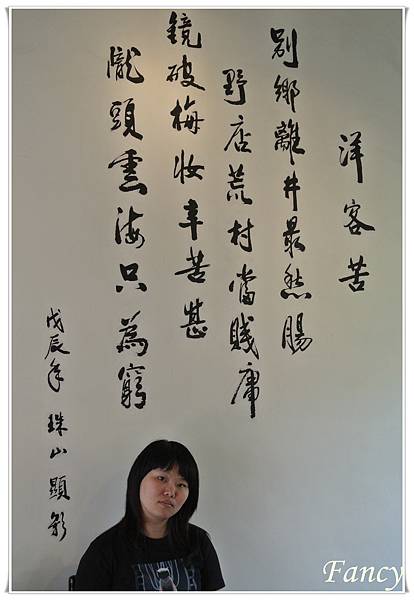 洋客苦
別鄉離井最愁腸
野店荒村當賤庸
鏡破梅妝辛苦甚
隴頭雲海只為窮
戊辰年 珠山顯影
Fancy